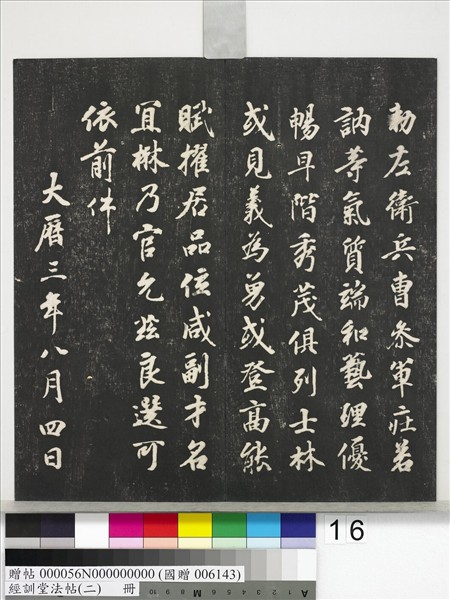 勑左衛兵曹叅軍莊若
訥等氣質端和藝理優
暢早階秀茂俱列士林
或見義為勇或登高能
賦擢居品位咸副才名
宜楙乃官允茲良選可
依前件
大曆三年八月四日
16
贈帖 000056N000000000 (國贈 006143)
經訓堂法帖(二) 冊